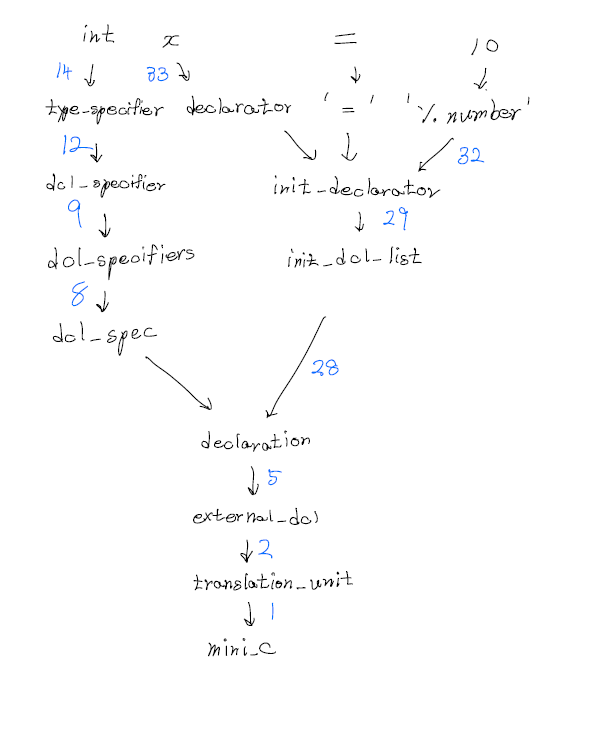 int x = 10
14 33
type-specifier declarator '=' '%number'
12 32
dcl-specifier init-declarator
9 29
dcl-specifiers init-dcl-list
8
dcl-spec
28
declaration
5
external-dcl
2
translation-unit
1
mini-C